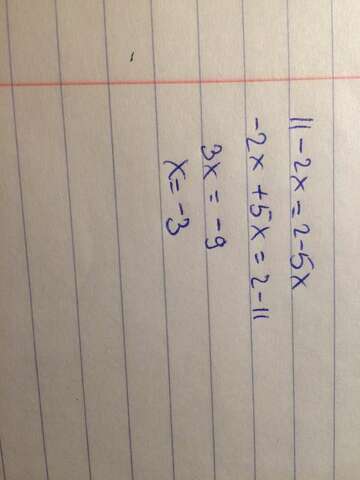 11 - 2x = 2 - 5x
-2x + 5x = 2 - 11
3x = -9
x = -3